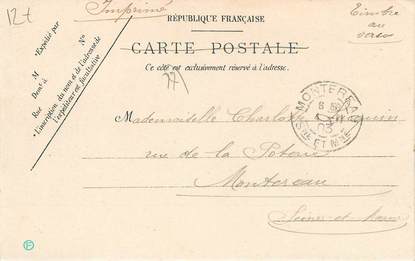 12t
Imprimé
Timbre
au
verso
RÉPUBLIQUE FRANÇAISE
CARTE POSTALE
Ce côté est exclusivement réservé à l'adresse.
77
* Expédié par
M
N°
Demt. à
Rue
* L'inscription du nom et de l'adresse de
l'expéditeur est facultative
MONTEREAU
8
03
SNE ET MNE
Mademoiselle Charlotte
rue de la Poterie
Montereau
Seine-et-Marne